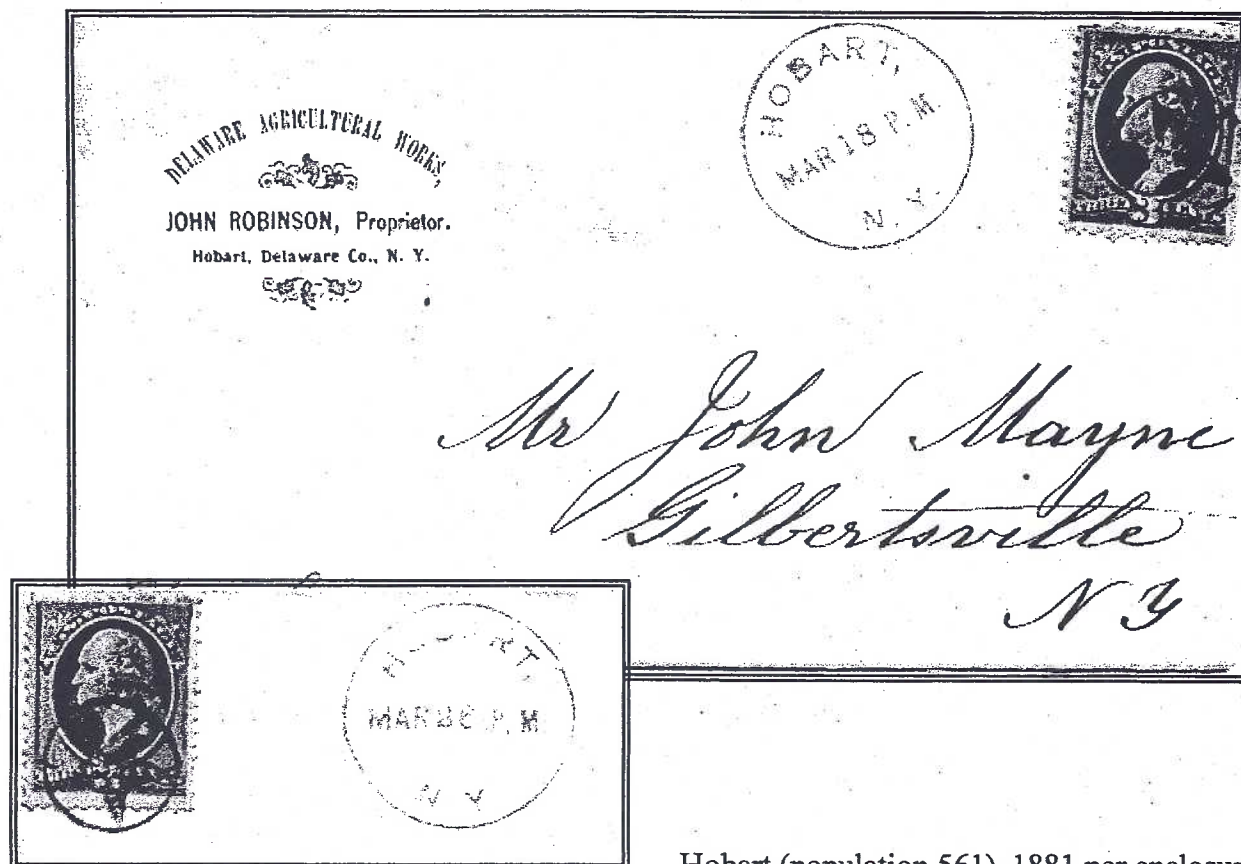 DELAWARE AGRICULTURAL WORKS,
JOHN ROBINSON, Proprietor.
Hobart, Delaware Co., N. Y.
HOBART,
MAR 18 P.M.
N. Y.
Mr John Mayne
Gilbertsville
N Y
P.M.
N Y
Hobart (population 561), 1881 per